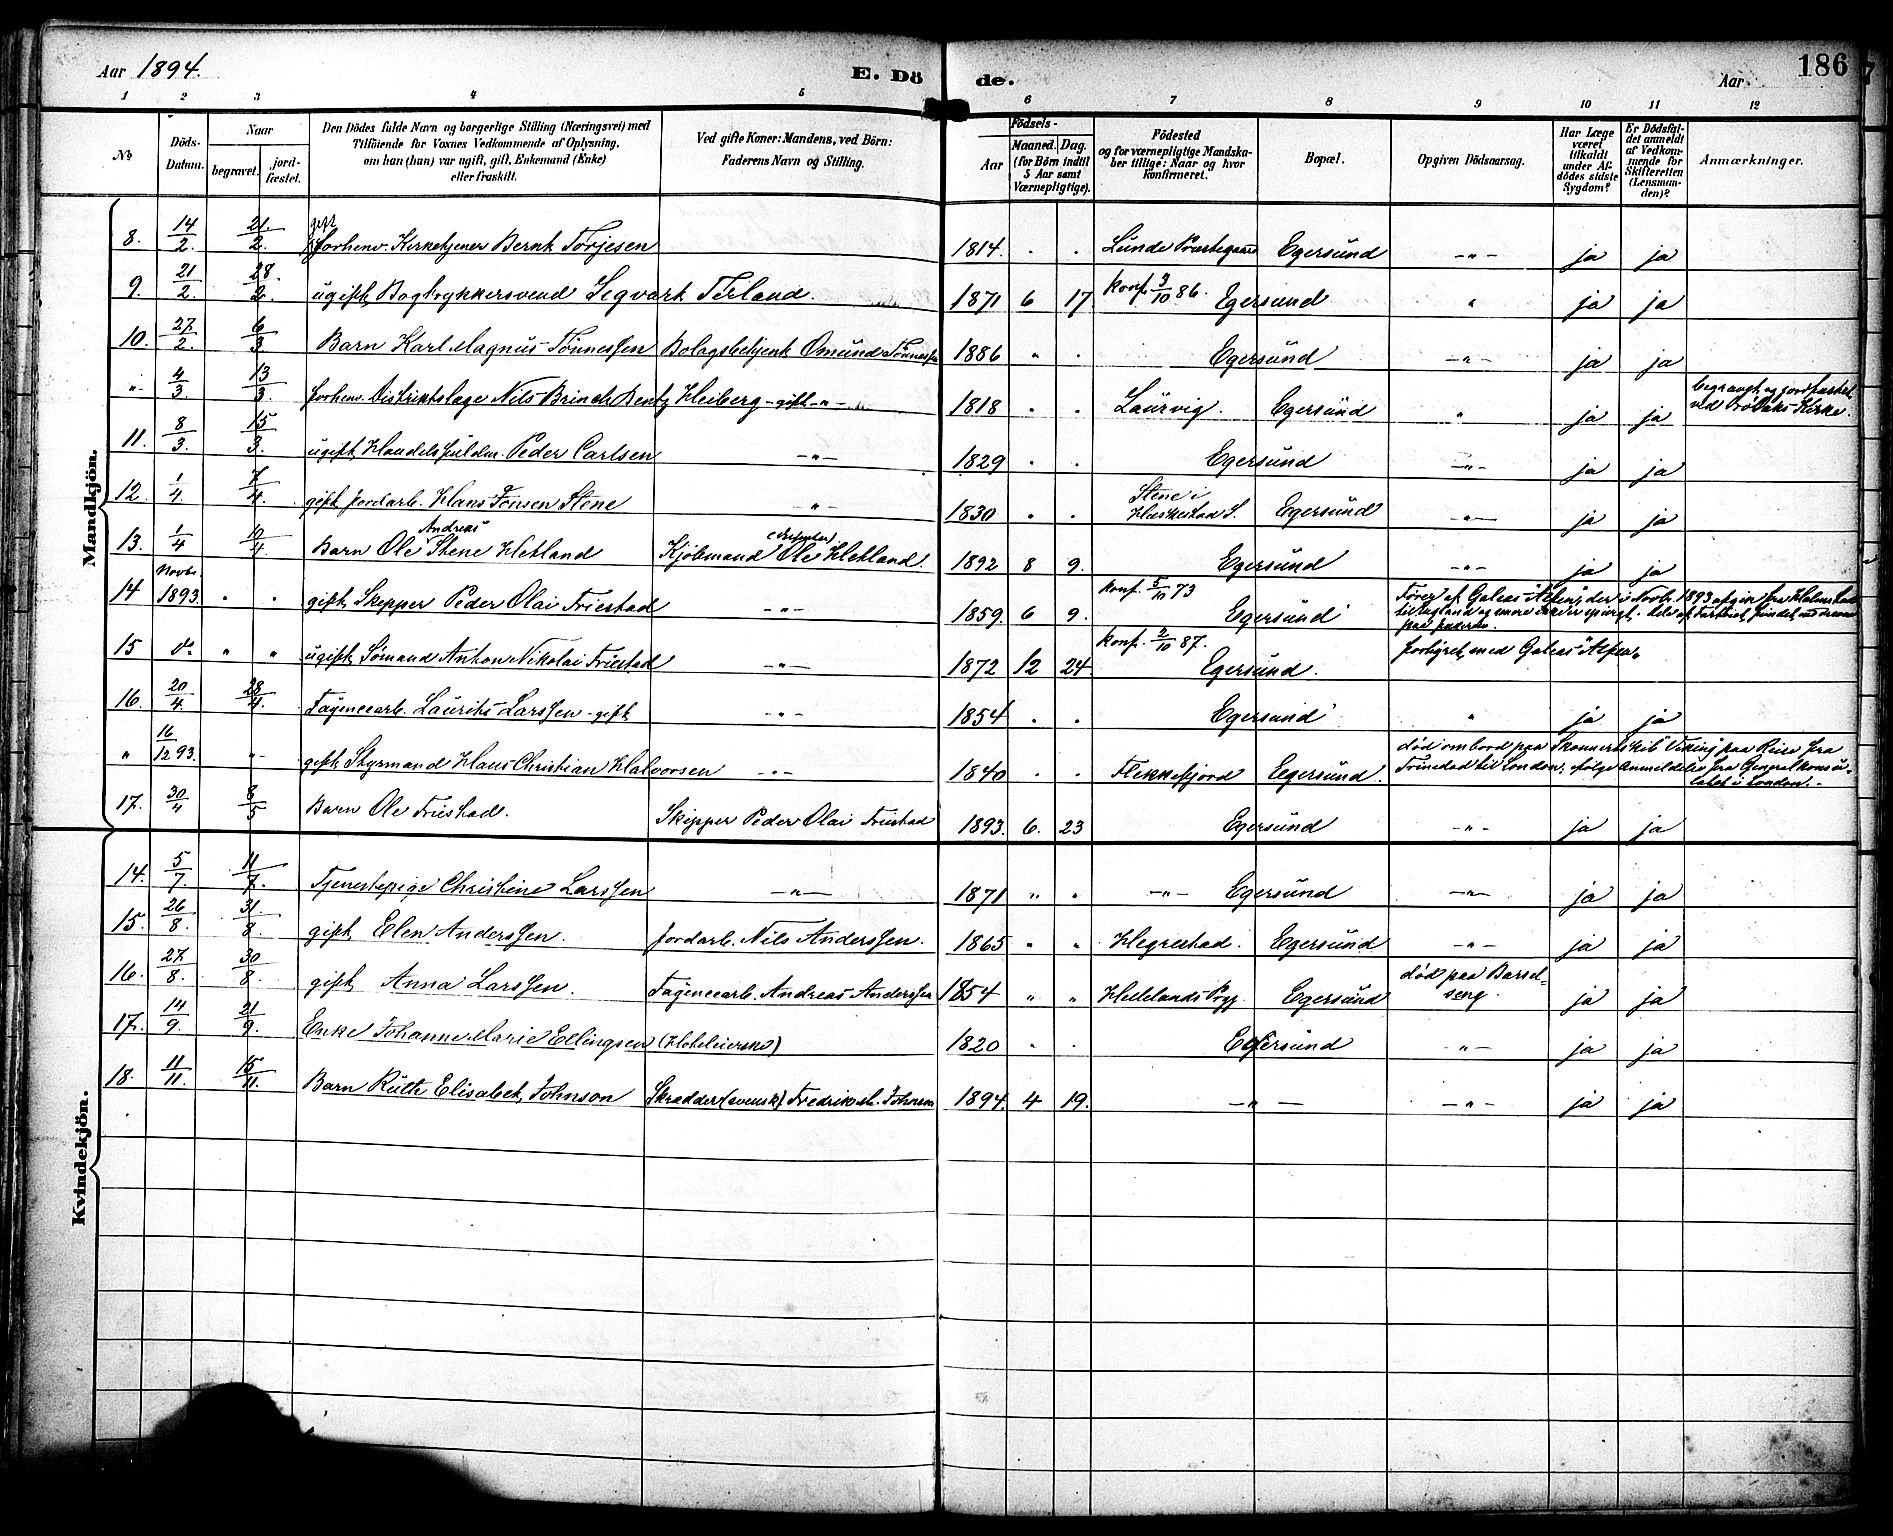 Aar 1894. E. Dö de. Aar 186
1 2 3 4 5 6 7 8 9 10 11 12
No Döds-Datum. Naar begravet. jord-fæstet. Den Dödes fulde Navn og borgerlige Stilling (Næringsvei) med Tilföiende for Voxnes Vedkommende af Oplysning, om han (hun) var ugift, gift, Enkemand (Enke) eller fraskilt. Ved gifte Koner: Mandens, ved Börn: Faderens Navn og Stilling. Födsels- Aar Maaned. Dag. (for Börn indtil 5 Aar samt Værnepligtige). Födested og for værnepligtige Mandskaber tillige: Naar og hvor Konfirmeret. Bopæl. Opgiven Dödsaarsag. Har Læge været tilkaldt under Afdödes sidste Sygdom? Er Dödsfaldet anmeldt af Vedkommende for Skifteretten (Lensmanden)? Anmærkninger.
Mandkjön.
8. 14/2. 21./2. gift forhenv. Kirketjener Bernt Torjesen 1814. . . Lunde Prestegaard Egersund -"- ja ja
9. 21/2. 28./2. ugift Bogtrykkersvend Segvart Terland. 1871 6 17. konf. 3/10 86. Egersund " ja ja
10. 27/2. 6/3 Barn Karl Magnus Tönnessen Bolagsbetjent Omund Tönnessen 1886 " . Egersund -"- ja ja
"- 4/3 13/3. forhenv. Distriktslæge Nils Brinch Bentz Heiberg - gift -"- 1818 . . Laurvig. Egersund " ja ja begravet og jordfæstet ved Kirke.
11. 8/3. 15/3. ugift Handelsfuldm. Peder Carlsen -"- 1829 . . Egersund -"- ja ja
12. 1/4. 7/4. gift Jordarb. Hans Tönsen Stene -"- 1830 " . Stene i Heskestad S. Egersund -"- ja ja
13. 1/4 10/4. Barn Ole Andreas Stene Hetland Kjöbmand Ole Hetland 1892 8 9. Egersund -"- ja ja
14 Novbr. 1893. " " gift Skipper Peder Olai Friestad -"- 1859. 6 9. konf. 5/10 73 Egersund Förer af Galeas "Alpen", der i Novb. 1893 afgik fra Halmstad til England
15 do " " ugift Sömand Anton Nikolai Friestad -"- 1872 12 24. konf. 2/10 87. Egersund. forlyst med Galeas "Alpen"
16. 20/4. 28/4. Fayencearb. Laurits Larssen - gift -"- 1854 . . Egersund " ja ja
" 16/12 93. "- gift Styrmand Hans Christian Halvorsen -"- 1840 . . Flekkefjord Egersund. död ombord paa Skonnertskib "Viking" paa Reise fra Trinidad til London, ifölge Anmeldelse fra Generalkonsulatet i London.-
17. 30/4 8/5 Barn Ole Friestad. Skipper Peder Olai Friestad 1893. 6. 23 Egersund -"- ja ja
Kvindekjön.
14. 5/7. 11/7. Tjenestepige Christine Larssen -"- 1871 " " -"- Egersund -"- ja ja
15. 26/8. 31/8 gift Elen Anderssen. Jordarb. Nils Anderssen. 1865 " " Hegrestad. Egersund -"- ja ja
16. 27/8. 30/8. gift Anna Larssen. Fayencearb. Andreas Anderssen 1854 " " Hetlands Pgj. Egersund död paa Barsel-seng. ja ja
17. 14/9. 21/9. Enke Johanne Marie Ellingsen (Hoteleierske) 1820 . . Egersund -"- ja ja
18. 11/11. 15/11. Barn Ruth Elisabet Johnson Skrædder (svensk) Fredrik Johnson 1894. 4 19. -"- -"- ja ja